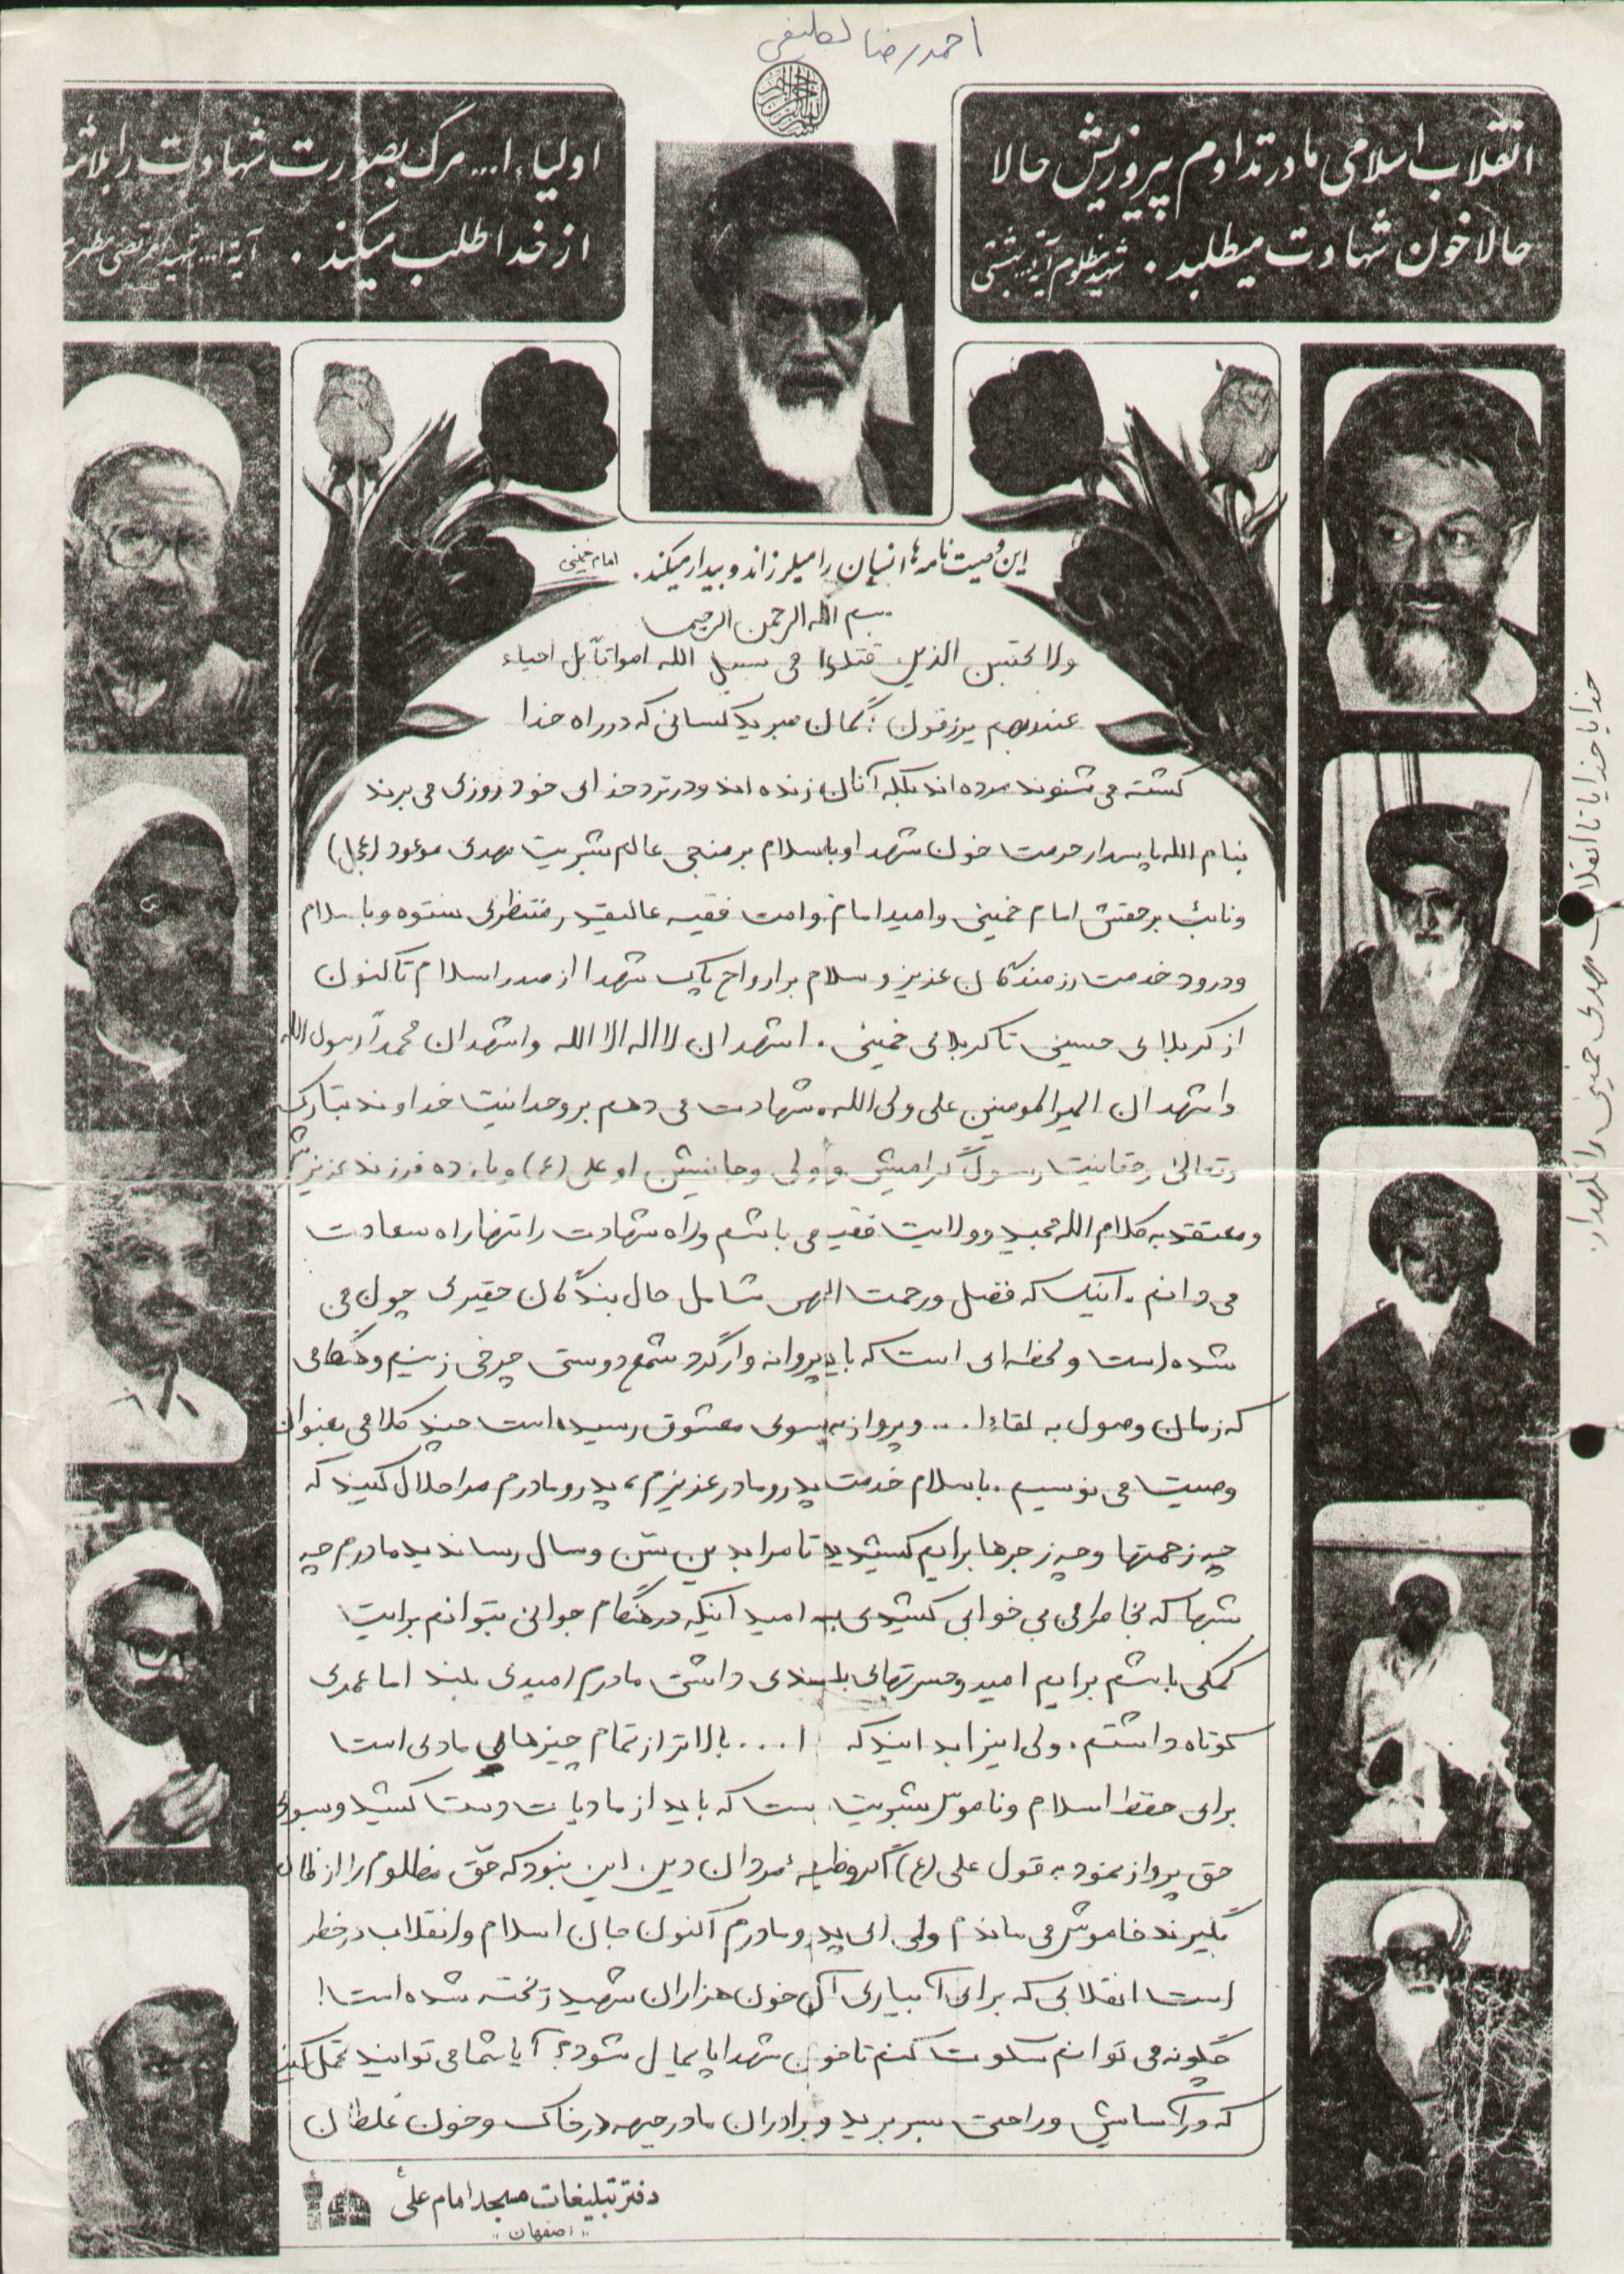 احمدرضا لطیفی
انقلاب اسلامی ما در تداوم پیروزیش حالا
حالا خون شهادت میطلبد . شهید مظلوم آیة... بهشتی
اولیاء ا... مرگ بصورت شهادت را
از خدا طلب میکنند . آیة ا... شهید مرتضی مطهری
این وصیت نامه ها انسان را میلرزاند و بیدار میکند . امام خمینی
بسم الله الرحمن الرحیم
ولا تحسبن الذین قتلوا فی سبیل الله امواتاً بل احیاء
عند ربهم یرزقون ؛ گمان مبرید کسانی که در راه خدا
کشته می شوند مرده اند بلکه آنان زنده اند و در نزد خدای خود روزی می برند
بنام الله پاسدار حرمت خون شهدا و با سلام بر منجی عالم بشریت مهدی موعود (عج)
و نائب برحقش امام خمینی و امید امام و امت فقیه عالیقدر منتظری ستوه و با سلام
و درود خدمت رزمندگان عزیز و سلام بر ارواح پاک شهدا از صدر اسلام تا کنون
از کربلای حسینی تا کربلای خمینی . اشهد ان لا اله الا الله و اشهد ان محمداً رسول الله
و اشهد ان امیرالمومنین علی ولی الله . شهادت می دهم بر وحدانیت خداوند تبارک
و تعالی و حقانیت رسول گرامیش و ولی و جانیشن او علی (ع) و یازده فرزند عزیزش
و معتقد به کلام الله مجید و ولایت فقیه می باشم و راه شهادت را تنها راه سعادت
می دانم . اینک که فضل و رحمت الهی شامل حال بندگان حقیری چون من
شده است و لحظه ای است که باید پروانه وار گرد شمع دوستی چرخی زنیم و هنگامی
که زمان وصول به لقاء ا... و پرواز به سوی معشوق رسیده است چند کلامی بعنوان
وصیت می نویسم . با سلام خدمت پدر و مادر عزیزم ، پدر و مادرم مرا حلال کنید که
چه زحمتها و چه زجرها برایم کشیدید تا مرا بدین سن و سال رساندید مادرم چه
شبها که بخاطر من بی خوابی کشیدی به امید اینکه در هنگام جوانی بتوانم برایت
کمکی باشم برایم امید و حسرتهای بلندی داشتی مادرم امیدی بلند اما عمری
کوتاه داشتم . ولی اینرا بدانید که ا... بالاتر از تمام چیزهای مادی است
برای حفظ اسلام و ناموس بشریت است که باید از مادیات دست کشید و بسوی
حق پرواز نمود به قول علی (ع) اگر وظیفه مردان دین این نبود که حق مظلوم را از ظالم
بگیرند خاموش می ماندم ولی ای پدر و مادرم اکنون جان اسلام و انقلاب در خطر
است انقلابی که برای آبیاری آن خون هزاران شهید ریخته شده است !
چگونه می توانم سکوت کنم تا خون شهدا پایمال شود ؟ آیا شما می توانید تحمل کنید
که در آسایش و راحتی بسر برید و برادران ما در جبهه در خاک و خون غلطان
دفتر تبلیغات مسجد امام علی
"اصفهان"
خدایا خدایا تا انقلاب مهدی خمینی را نگهدار